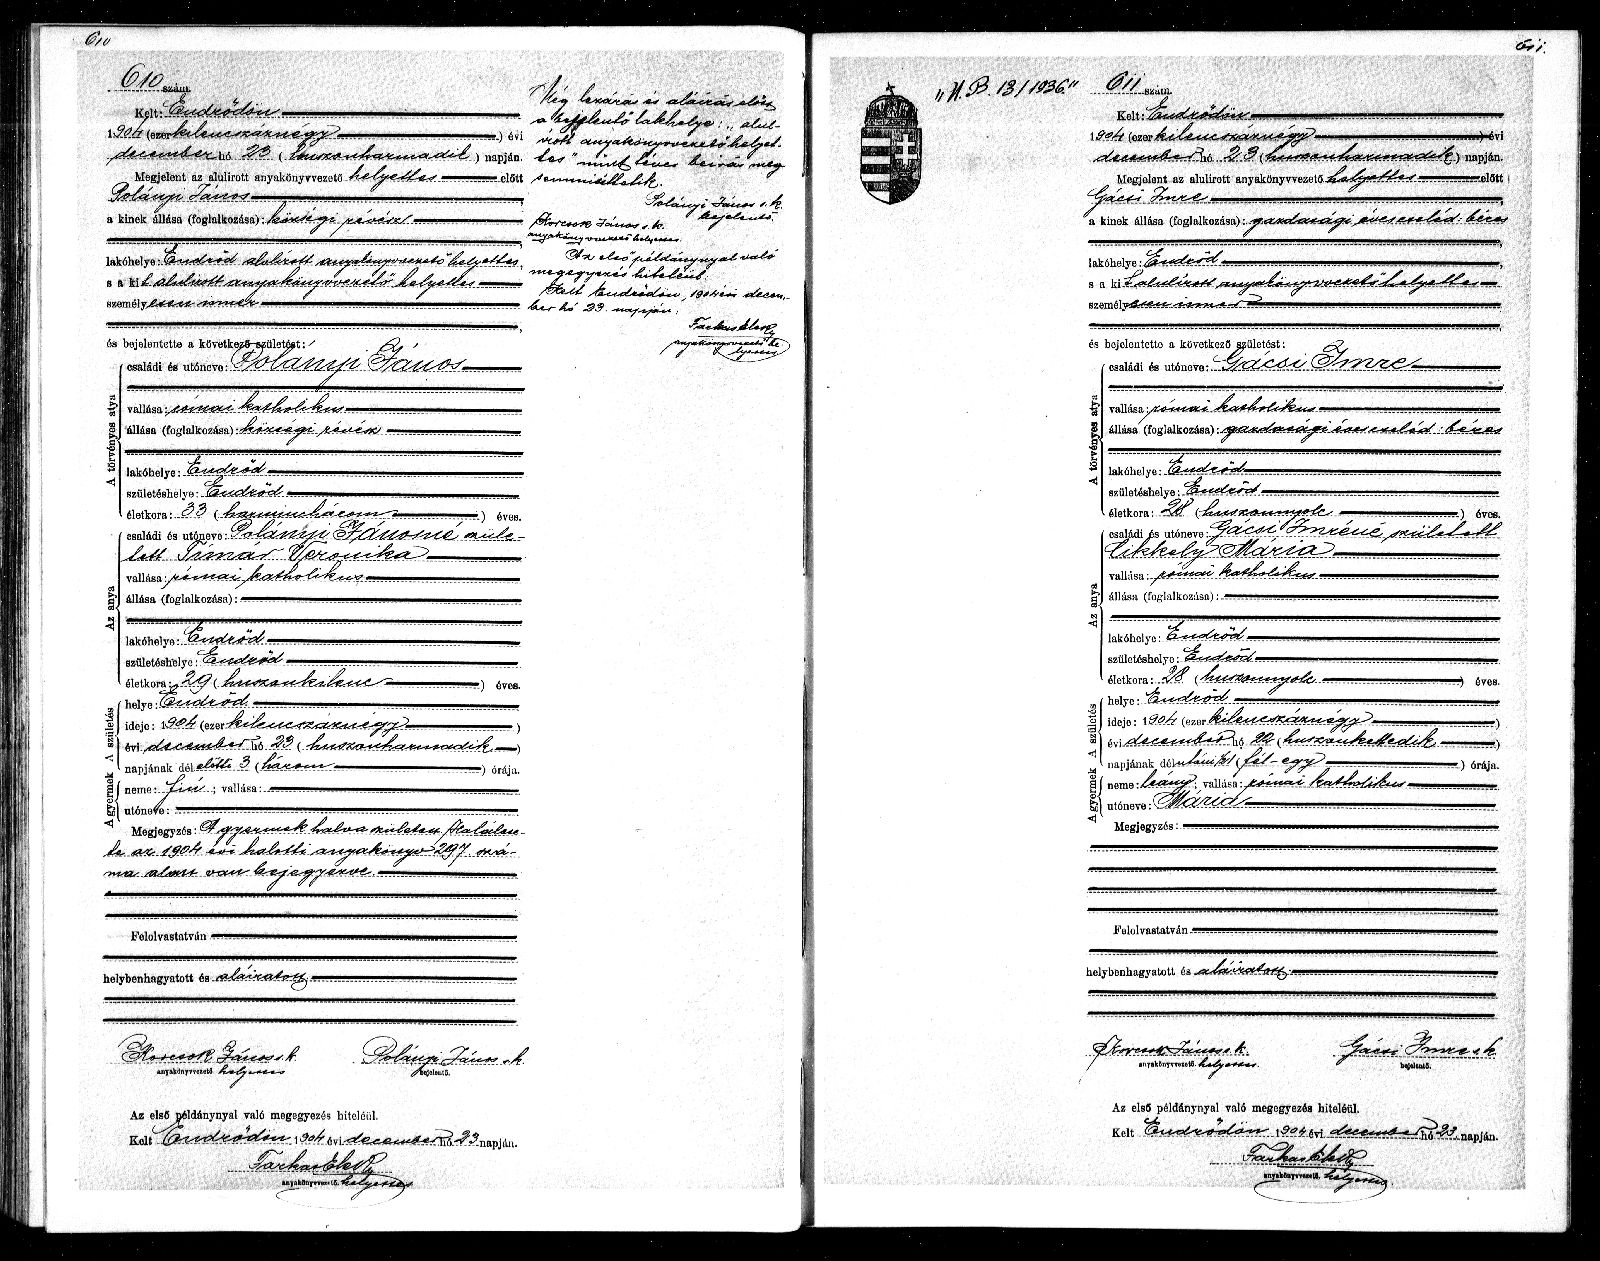 610
610 szám.
Kelt: Endrődön
1904 (ezer kilencszáznégy) évi
december hó 23 (huszonharmadik) napján.
Megjelent az alulirott anyakönyvvezető helyettes előtt
Polányi János
a kinek állása (foglalkozása): községi révész
lakóhelye: Endrőd alulirott anyakönyvvezető helyettes,
s a kit alulirott anyakönyvvezető helyettes
személyesen ismer
és bejelentette a következő születést:
A törvényes atya
családi és utóneve: Polányi János
vallása: római katholikus
állása (foglalkozása): községi révész
lakóhelye: Endrőd
születéshelye: Endrőd
életkora: 33 (harminchárom) éves.
Az anya
családi és utóneve: Polányi Jánosné szüle-
tett Tímár Veronika
vallása: római katholikus
állása (foglalkozása):
lakóhelye: Endrőd
születéshelye: Endrőd
életkora: 29 (huszonkilenc) éves.
A születés
helye: Endrőd
ideje: 1904 (ezer kilencszáznégy)
évi december hó 23 (huszonharmadik)
napjának dél előtti 3 (három) órája.
A gyermek
neme: fiú; vallása:
utóneve:
Megjegyzés: A gyermek halva született. Halálese-
te az 1904 évi halotti anyakönyv 297 szá-
ma alatt van bejegyezve.
Felolvastatván
helybenhagyatott és aláiratott
Korcsok János s.k.
anyakönyvvezető helyettes
Polányi János s.k.
bejelentő.
Az első példánynyal való megegyezés hiteléül.
Kelt Endrődön 1904 évi december hó 23 napján.
Farkas
anyakönyvvezető. helyettes
Még lezárás és aláírás előtt
a bejelentő lakhelye: "alul-
irott anyakönyvvezető helyet-
tes" mint téves beirás meg
semmisíttetik.
Polányi János s.k.
bejelentő
Korcsok János s.k.
anyakönyvvezető helyettes.
Az első példánynyal való
megegyezés hiteléül.
Kelt Endrődön, 1904 évi decem-
ber hó 23. napján.
Farkas
anyakönyvvezető he
lyettes
611.
"U. B. 13/1936."
611 szám.
Kelt: Endrődön
1904 (ezer kilencszáznégy) évi
december hó 23 (huszonharmadik) napján.
Megjelent az alulirott anyakönyvvezető helyettes előtt
Gácsi Imre
a kinek állása (foglalkozása): gazdasági évescseléd: béres
lakóhelye: Endrőd
s a kit alulirott anyakönyvvezető helyettes
személyesen ismer
és bejelentette a következő születést:
A törvényes atya
családi és utóneve: Gácsi Imre
vallása: római katholikus
állása (foglalkozása): gazdasági évescseléd: béres
lakóhelye: Endrőd
születéshelye: Endrőd
életkora: 28 (huszonnyolc) éves.
Az anya
családi és utóneve: Gácsi Imréné született
Cikkely Mária
vallása: római katholikus
állása (foglalkozása):
lakóhelye: Endrőd
születéshelye: Endrőd
életkora: 28 (huszonnyolc) éves.
A születés
helye: Endrőd
ideje: 1904 (ezer kilencszáznégy)
évi december hó 22 (huszonkettedik)
napjának dél utáni ½1 (fél-egy) órája.
A gyermek
neme: leány; vallása: római katholikus
utóneve: Mária
Megjegyzés:
Felolvastatván
helybenhagyatott és aláiratott
Korcsok János s.k.
anyakönyvvezető helyettes.
Gácsi Imre s.k.
bejelentő.
Az első példánynyal való megegyezés hiteléül.
Kelt Endrődön 1904 évi december hó 23 napján.
Farkas
anyakönyvvezető. helyettes